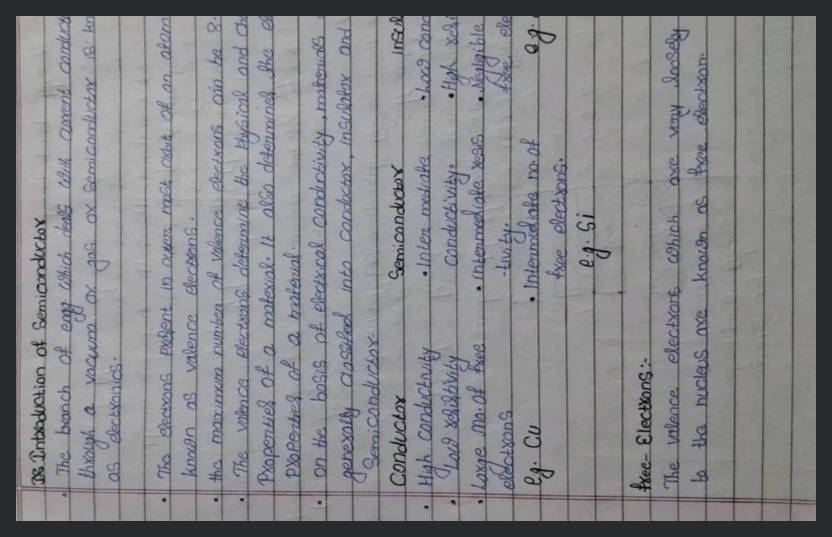 Introduction of Semiconductor
• The branch of engg which deals with current conduct
through a vacuum or gas or semiconductor is kn
as electronics.
• The electrons present in outer most orbit of an atom
known as valence electrons.
• the maximum number of valence electrons can be 8.
• The valence electrons determine the Physical and che
Properties of a material. It also determines the el
properties of a material.
• on the basis of electrical conductivity, materials
generally classified into conductor, insulator and
Semiconductor
Conductor Semiconductor insul
• High conductivity • Inter mediate • Low cond
• Low resistivity conductivity. • High resi
• Large no. of free • Intermediate resis • Negligible
electrons -tivity. free ele
e.g. Cu • Intermediate no. of e.g.
free electrons.
e.g. Si
free- Electrons:-
The valence electrons which are very loosely
to the nucleus are known as free electron.